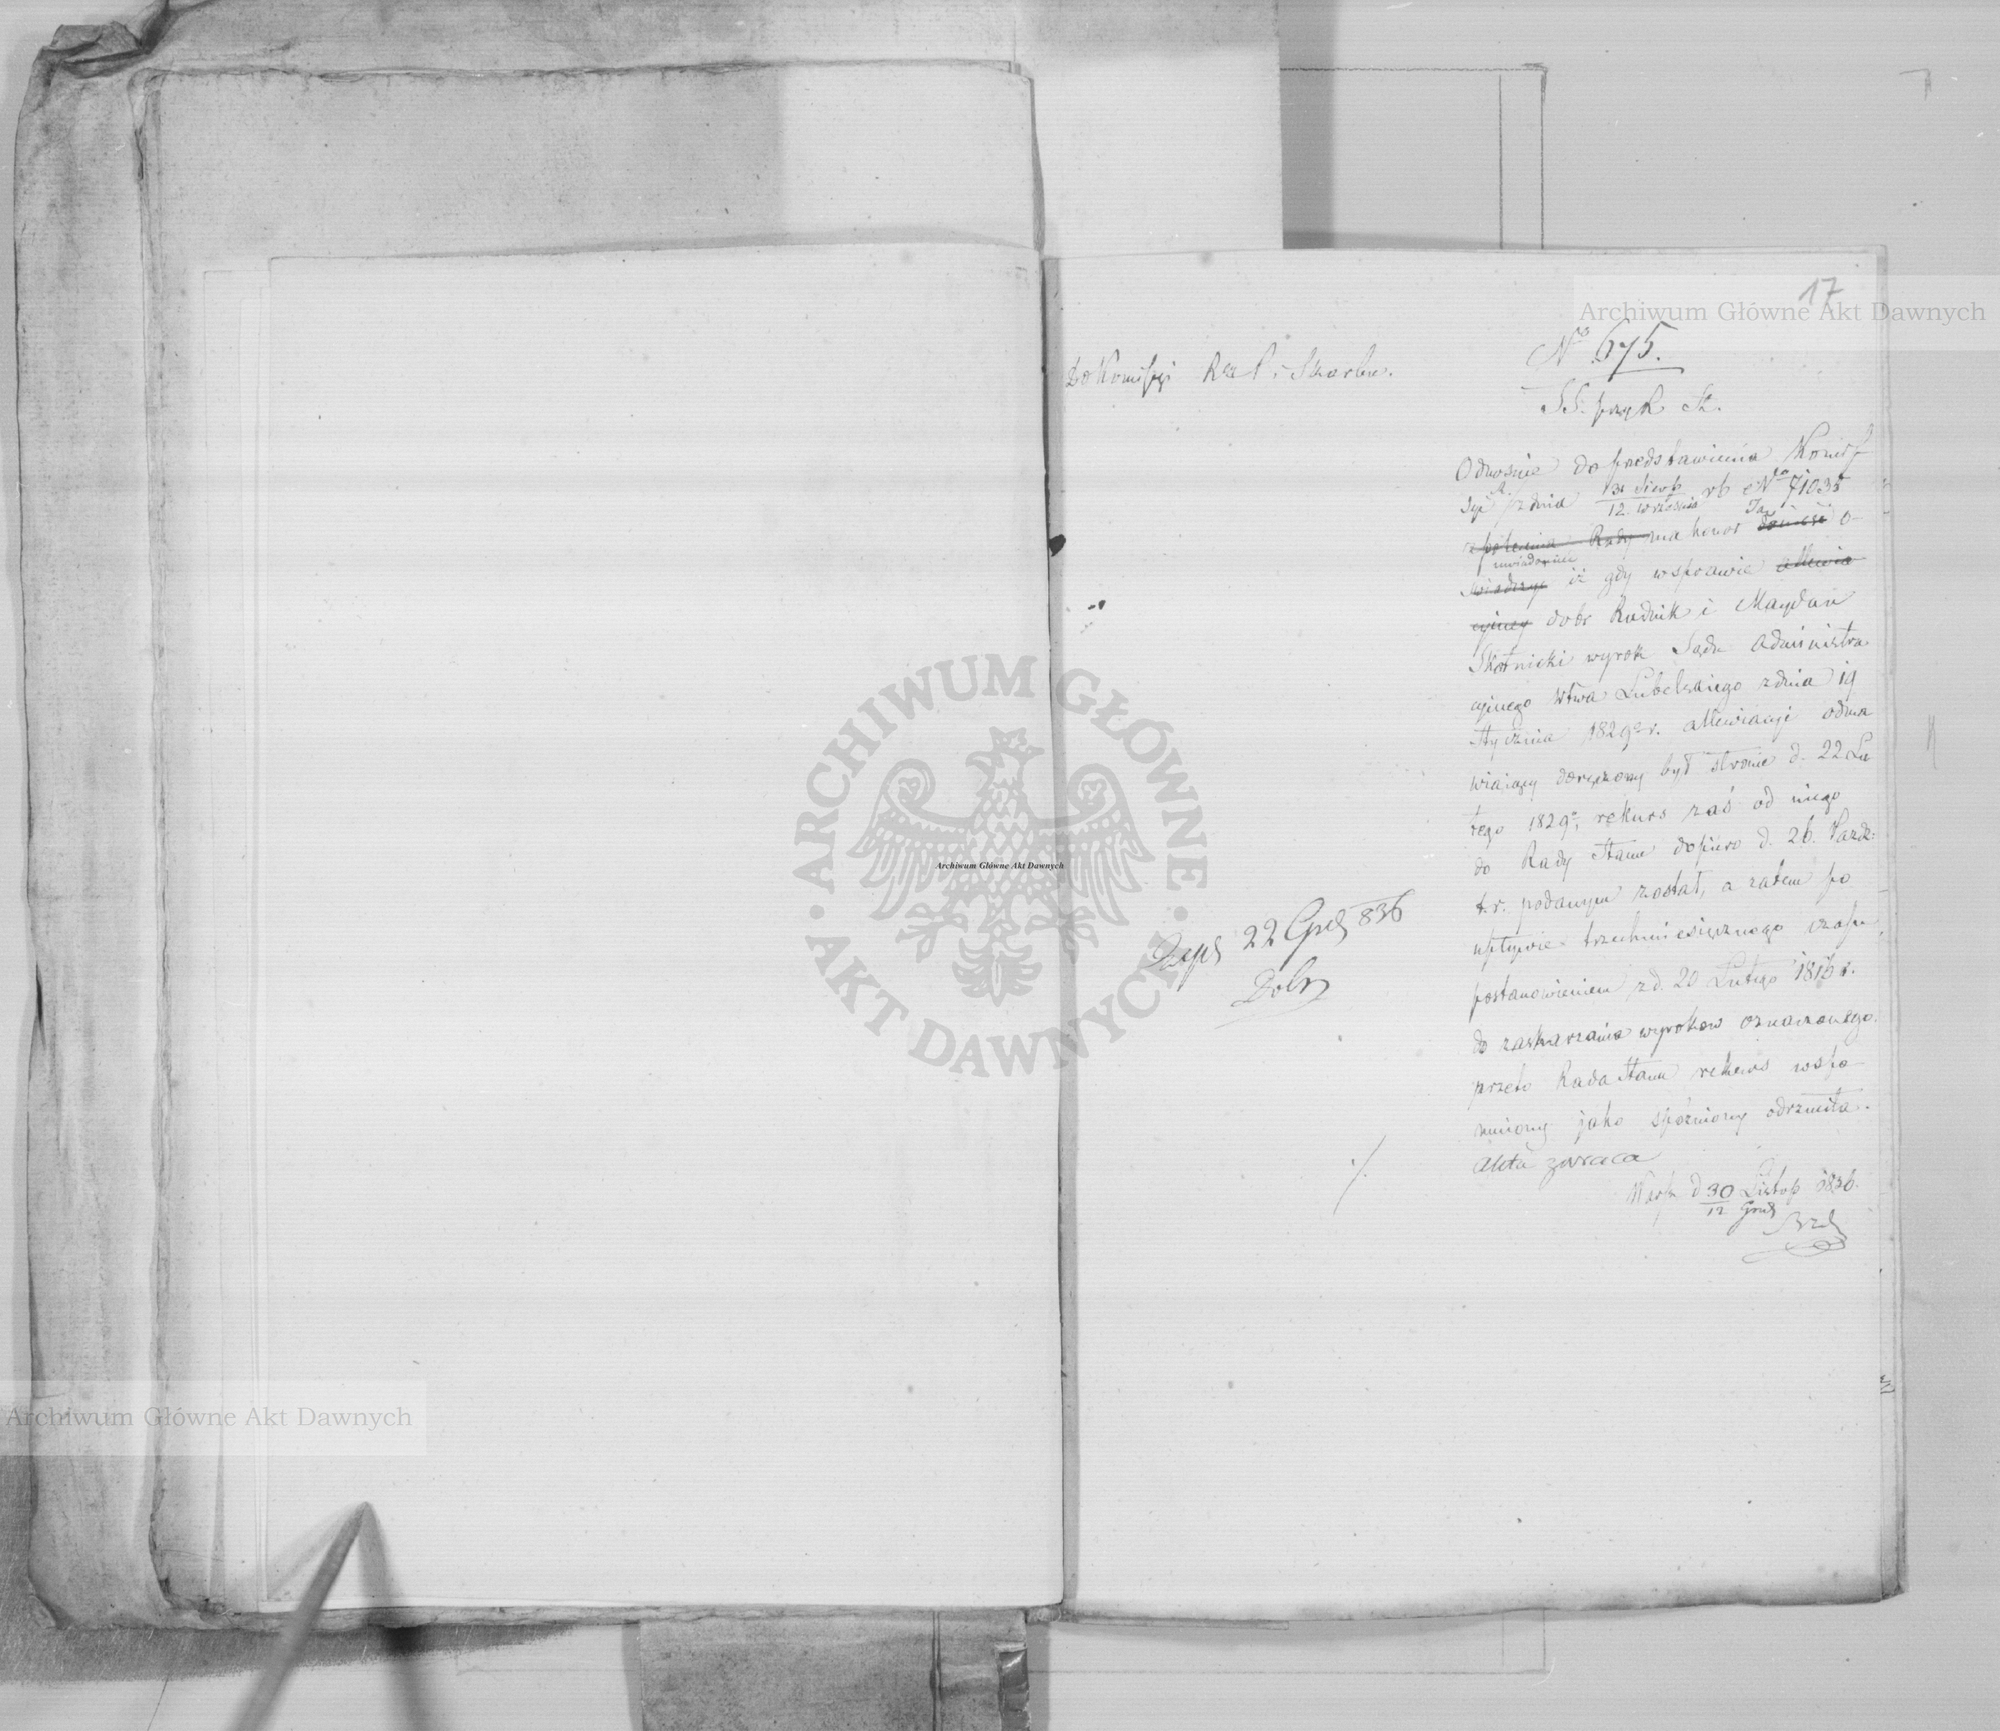 17
Archiwum Główne Akt Dawnych
No 675.
Do Komissyi Rzą P i Skarbu.
SS. przy R. St.
Odnośnie do przedstawienia Komis
syi z dnia 31 Sierp / 12 września rb No 71035
z polecenia Rady ma honor donieść o-
uwiadomić
świadczyć iż gdy w sprawie allewia
cyjney dobr Rudnik i Maydan
Skotnicki wyrok Sądu Administra
cyjnego Wtwa Lubelskiego z dnia 19
Stycznia 1829o r. allewiacyi odma
wiaiący doręczony był stronie d. 22 Lu
tego 1829o, rekurs zaś od niego
do Rady Stanu dopiero d. 26. Paźdz:
t. r. podanym został, a zatem po
upływie trzechmiesięcznego czasu,
postanowieniem z d. 20 Lutego 1816 r.
do zaskarzania wyrokow oznaczonego.
przeto Rada Stanu rekurs wspo-
mniony jako spóźniony odrzuciła.
Akta zwraca
Warsz d 30 Listop / 12 Grud 1836.
22 Grud 836
ARCHIWUM GŁÓWNE AKT DAWNYCH
Archiwum Główne Akt Dawnych
Archiwum Główne Akt Dawnych